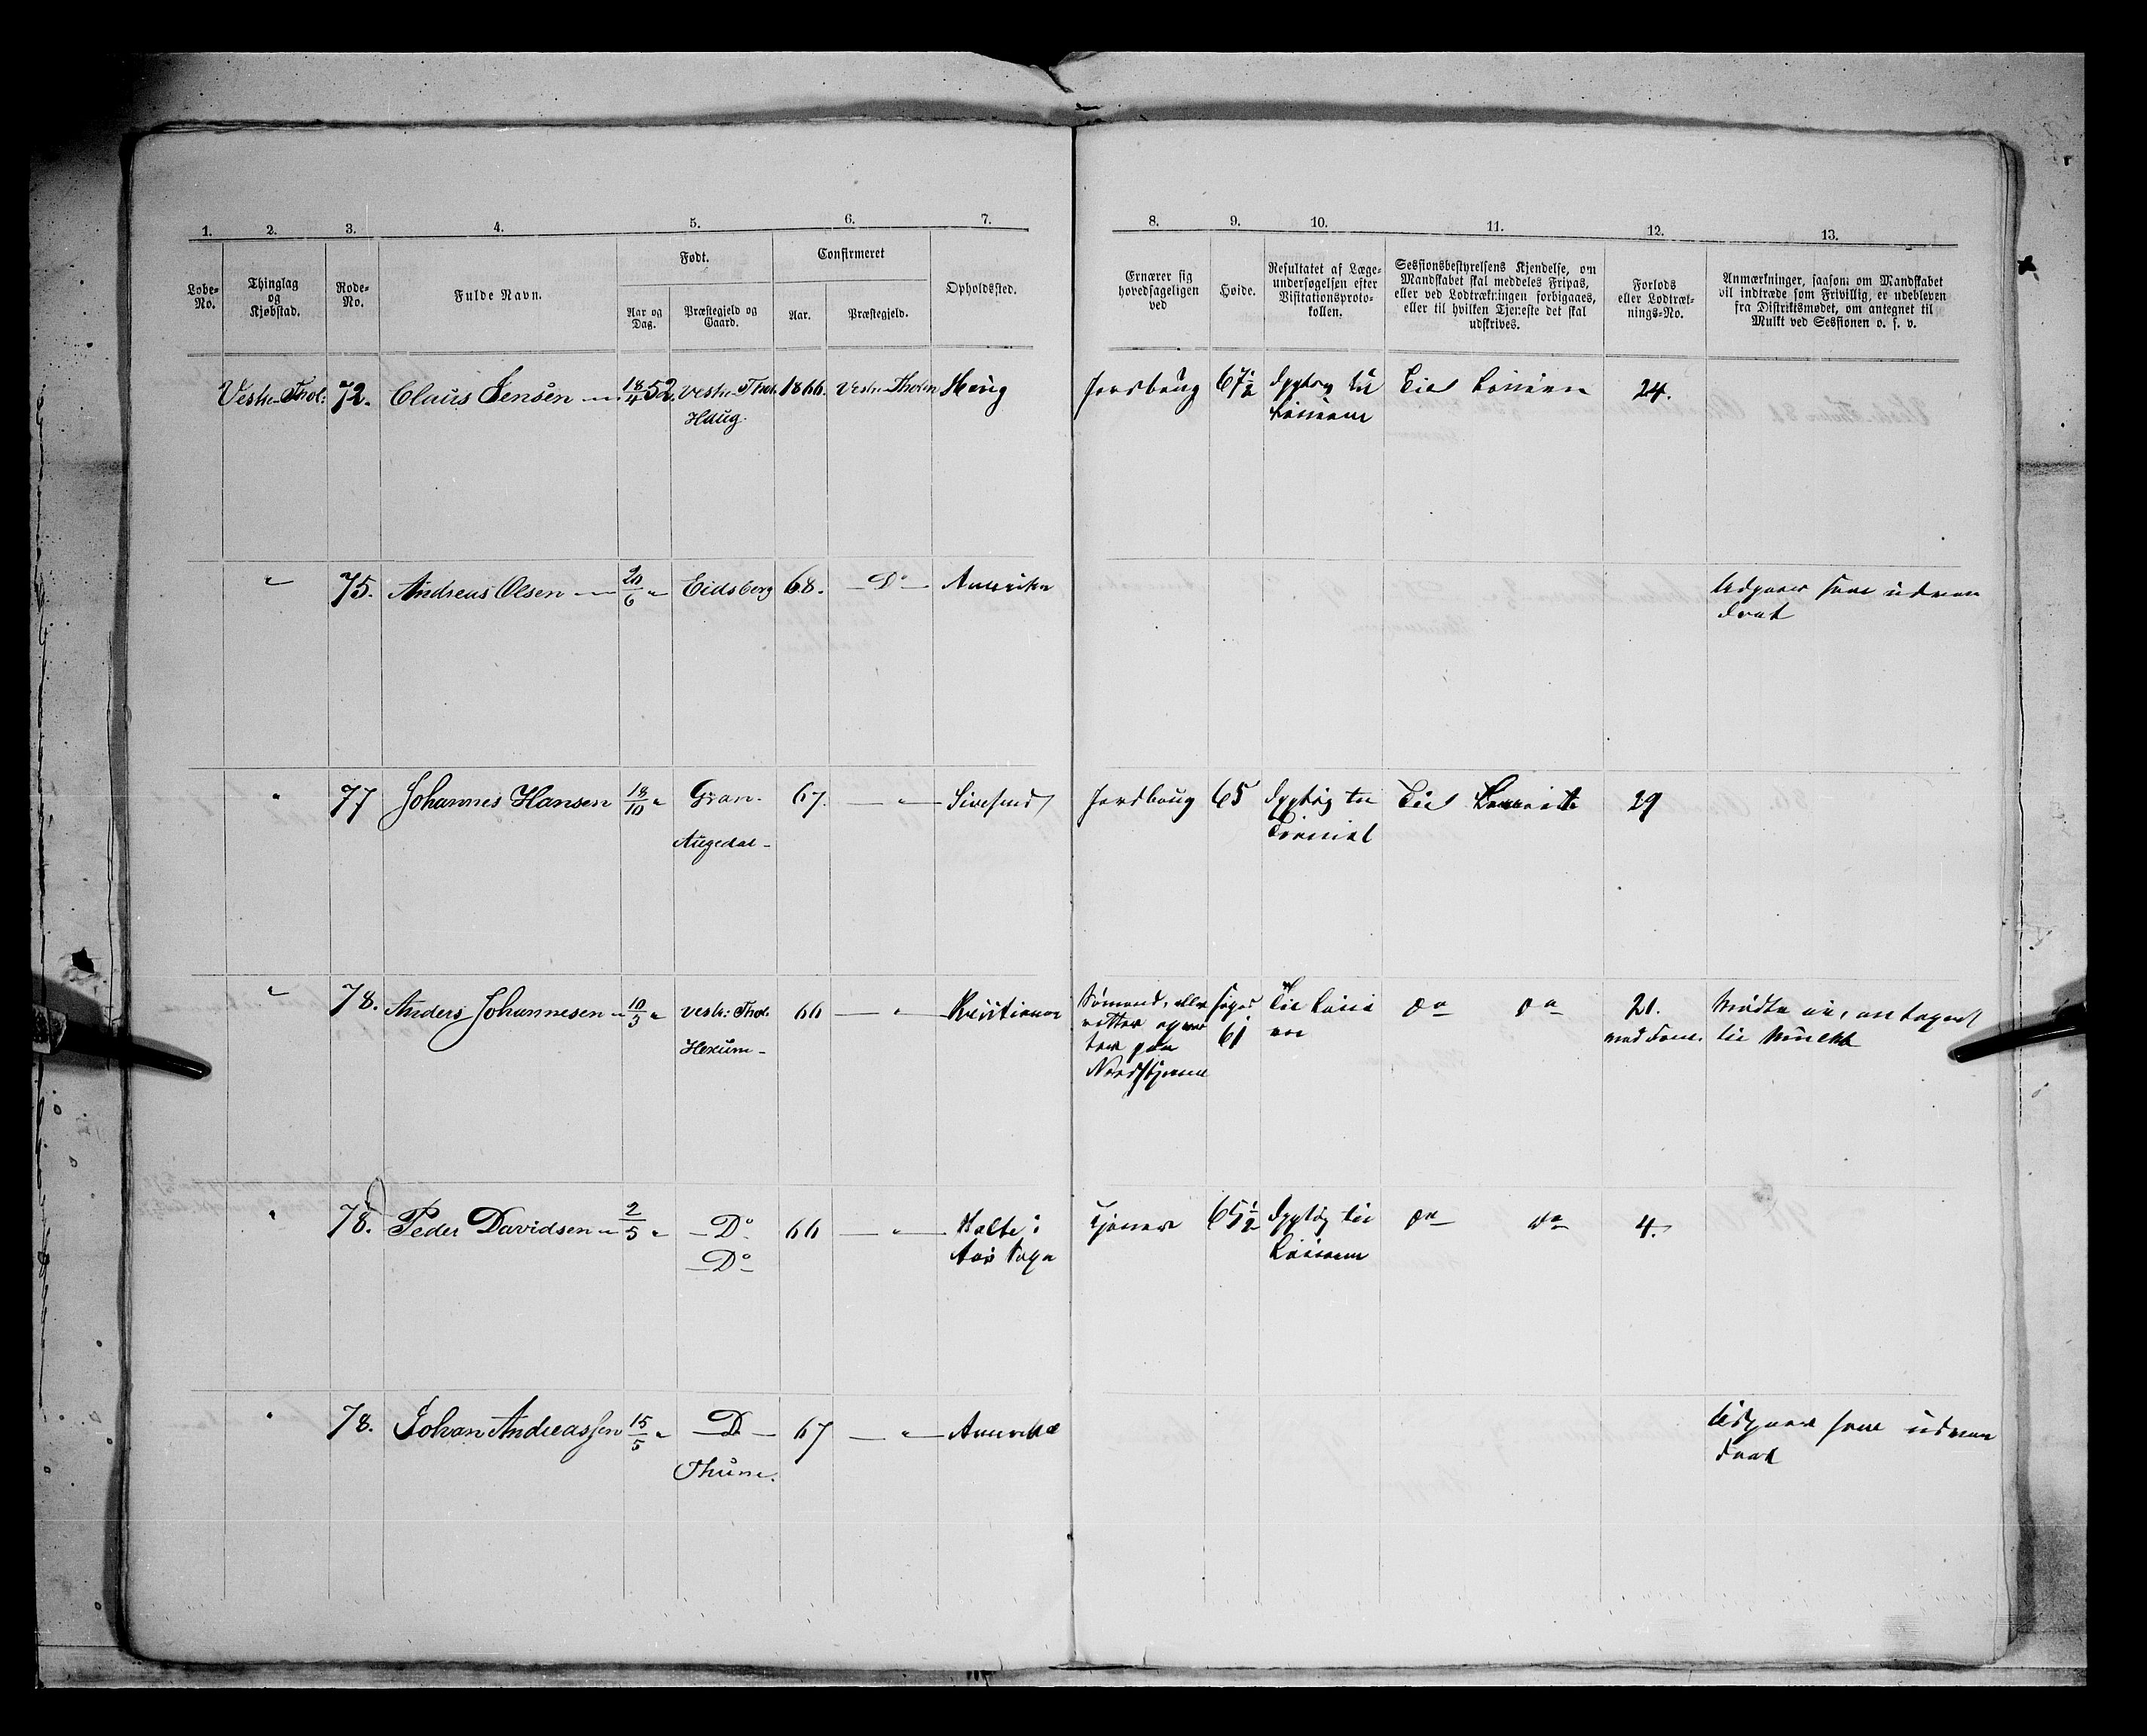 1. 2. 3. 4. 5. 6. 7. 8. 9. 10. 11. 12. 13.
Løbe-No.
Thinglag og Kjøbstad.
Rode-No.
Fulde Navn.
Født.
Aar og Dag.
Præstegjeld og Gaard.
Confirmeret
Aar.
Præstegjeld.
Opholdssted.
Ernærer sig
hovedsageligen
ved
Høide.
Resultatet af Læge-
undersøgelsen efter
Visitationsproto-
kollen.
Sessionsbestyrelsens Kjendelse, om
Mandskabet skal meddeles Fripas,
eller ved Lodtrækningen forbigaaes,
eller til hvilken Tjeneste det skal
udskrives.
Forlods
eller Lodtræk-
nings-No.
Anmærkninger, saasom om Mandskabet
vil indtræde som Frivillig, er udebleven
fra Distriktsmødet, om antegnet til
Mulkt ved Sessionen o. s. v.
Vestre Thot: 72. Claus Jensen 18/4 52 Vestre Thot. 1866. Vestre Thoten Haug Jordbrug 67 1/2 dygtig til Til Linien 24.
Haug. Linien
" 75. Andreas Olsen 20/6 " Eidsberg 68. D° Amerika Udgaaer som udvan
dret
" 77 Johannes Hansen 18/10 " Gran. 67. " Jordbrug 65 dygtig til Til 29
Augedal
" 78. Anders Johannesen 10/3 " Vestr: Thot. 66 " Kristiania Sømand, eller siger Til Lini D° D° 21. Mødte ei, antegnet
Hexum 61 en til Mulkt
Nordstjernen
" 78. Peder Davidsen 2/5 " D° 66 " Holte i Tjener 65 1/2 dygtig til D° D° 4.
D° Aas Sogn Linien
" 78. Johan Andreassen 15/5 " D 67 " Amerika Udgaaer som udvan
Thune. dret